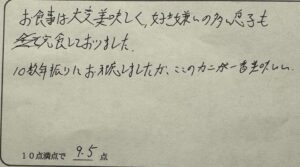 お食事は大変美味しく、好き嫌いの多い息子も
全て完食しておりました。
10数年振りにお邪しましたが、ここのカニが一番美味しい。
10点満点で 9.5 点